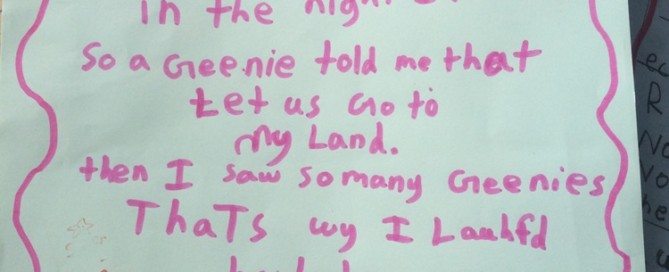 in the
So a Geenie told me that
Let us Go to
My Land.
then I saw so many Geenies
ThaTs wy I Lauhfd